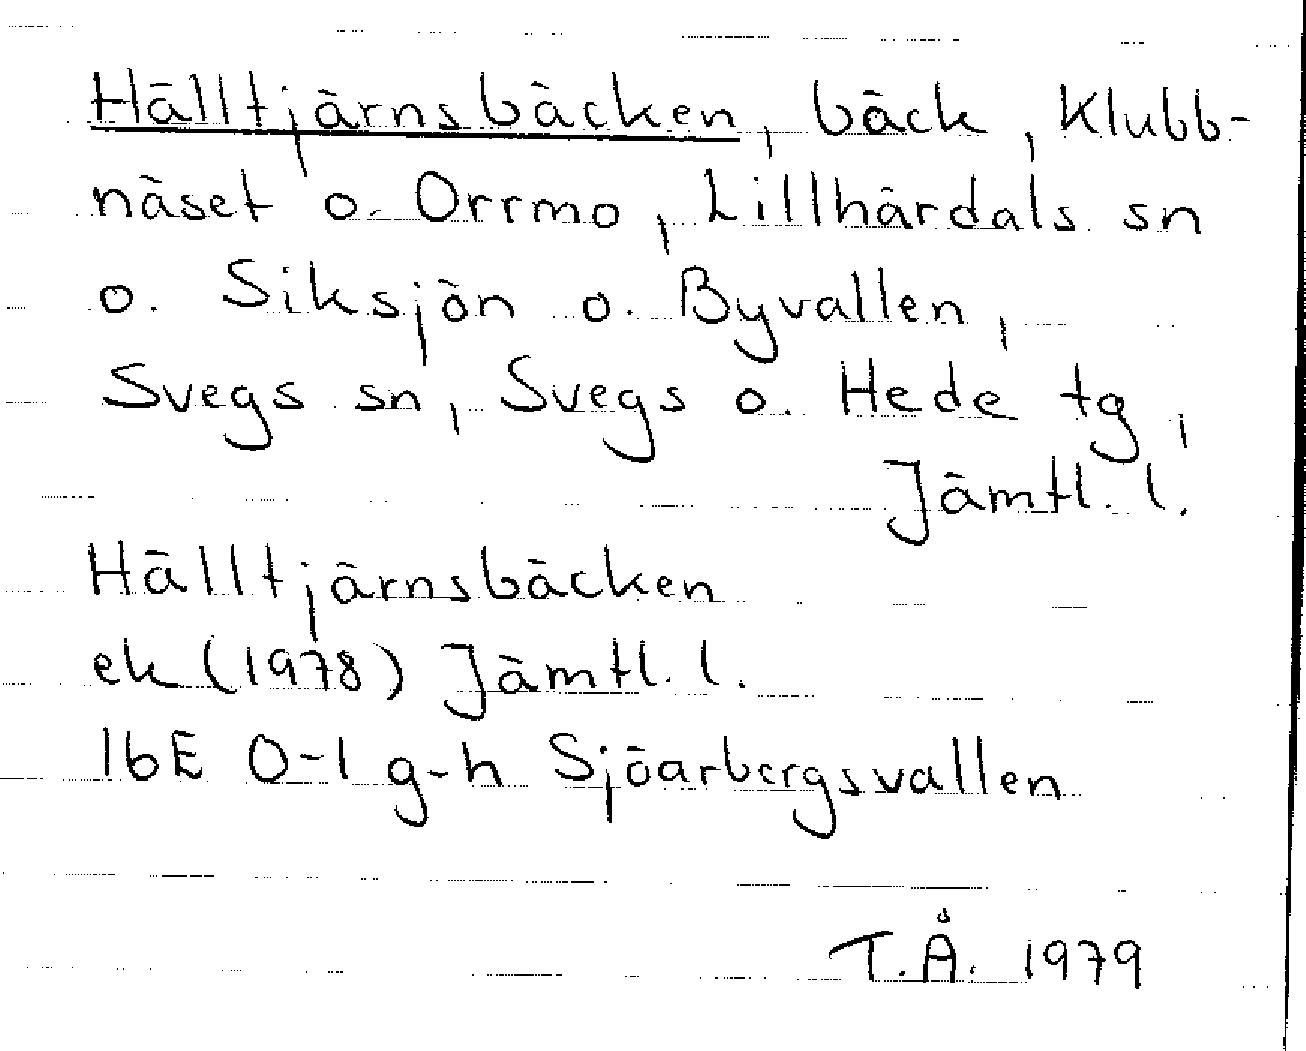 Hälltjärnsbäcken, bäck, Klubb-
näset o. Orrmo, Lillhärdals sn
o. Siksjön o. Byvallen,
Svegs sn, Svegs o. Hede tg,
Jämtl. l.
Hälltjärnsbäcken
ek (1978) Jämtl. l.
16E 0-1 g-h Sjöarbergsvallen
T.Å. 1979